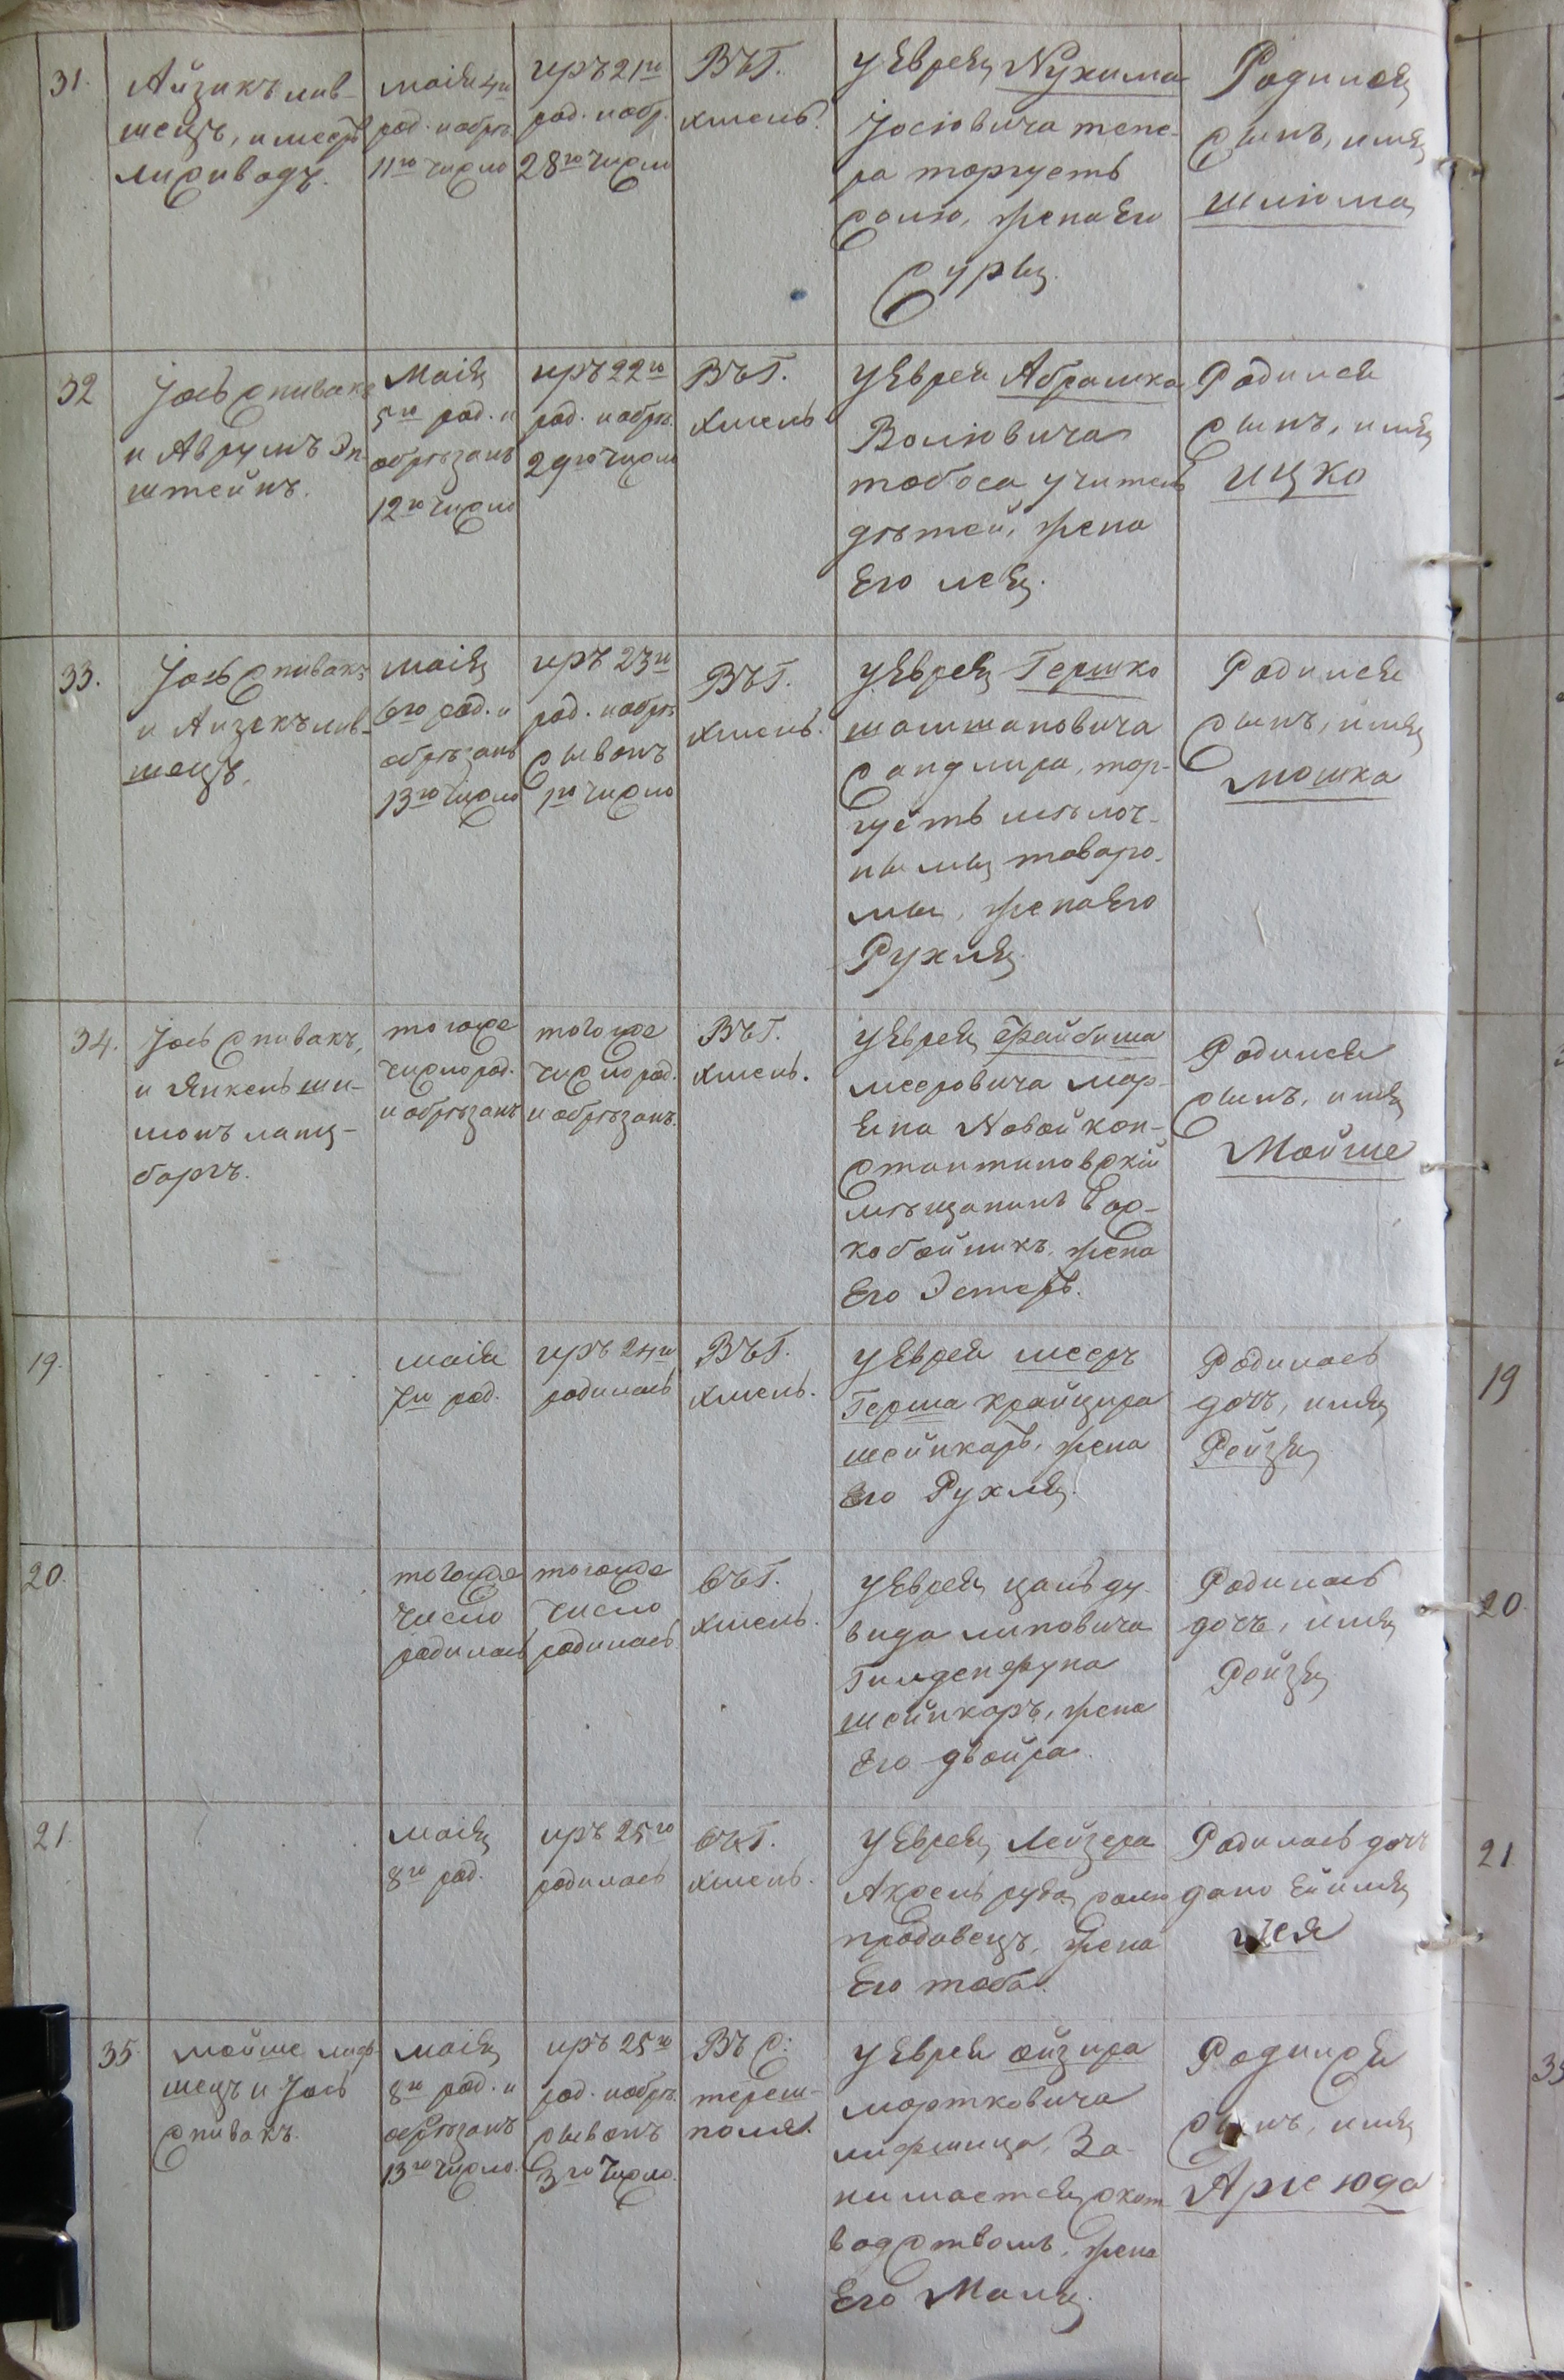 31.
Айзикъ лив-
шецъ, и мееръ
маія 4го
род. и обрѣз.
11го число
иръ 21го
род. и обр.
28го число
ВъГ.
хмель.
У Еврея Нухима
Јосіовича
торгуетъ
солю, жена Его
Суря.
Родился
сынъ, имя
шліома
32
Јось спивакъ
и Аврумъ Эп-
штейнъ.
Маія
5го род. и
обрѣзанъ
12го число
иръ 22го
род. и обрѣз.
29го число
ВъГ.
хмель
У Еврея Абрашка
Воліовича
учитель
дѣтей, жена
Его лея.
Родился
сынъ, имя
ицко
33.
Јось спивакъ
и Аизекъ лив-
шецъ.
маія
6го род. и
обрѣзанъ
13го число
иръ 23го
род. и обрѣз.
сывонъ
1го число
ВъГ.
хмель.
У Еврея Гершко
шомшановича
сандлира, тор-
гуетъ мѣлоч-
нымы товаро-
мы, жена Его
Рухля.
Родился
сынъ, имя
мошка
34.
Јось спивакъ,
и Янкель ши-
монъ ланц-
бергъ.
того же
число род.
и обрѣзанъ
того же
число род.
и обрѣзанъ.
ВъГ.
хмель.
У Еврея Файбиша
мееровича мар-
Ена Новой кон-
стантиновскій
мѣщанинъ
жена
Его Эстеръ.
Родился
сынъ, имя
Мойше
19.
маія
7го род.
иръ 24го
родилась
ВъГ.
хмель.
У Еврея мееръ
Герша крайцира
шейнкаръ, жена
Его Рухля.
Родилась
дочъ, имя
Рейзя
19
20.
того же
число
родилась
того же
число
родилась
ВъГ.
хмель.
У Еврея цаль ду-
вида липовича
Гилденфуна
шейнкаръ, жена
Его двойра.
Родилась
дочъ, имя
Рейзя
20.
21.
маія
8го род.
иръ 25го
родилась
ВъГ.
хмель.
У Еврея Лейзера
солю
продавецъ, жена
Его тоба.
Родилась дочъ
дано Ей имя
21.
35
мойше лиф-
шецъ и Јось
спивакъ.
маія
8го род. и
обрѣзанъ
13го число.
иръ 25го
род. и обрѣз.
сывонъ
3го число.
Въ с:
тереш-
поля.
У Еврея ойзира
мортковича
лифшица, За-
нимается скот-
водствомъ, жена
Его Маля.
Родился
сынъ, имя
Аріе юда